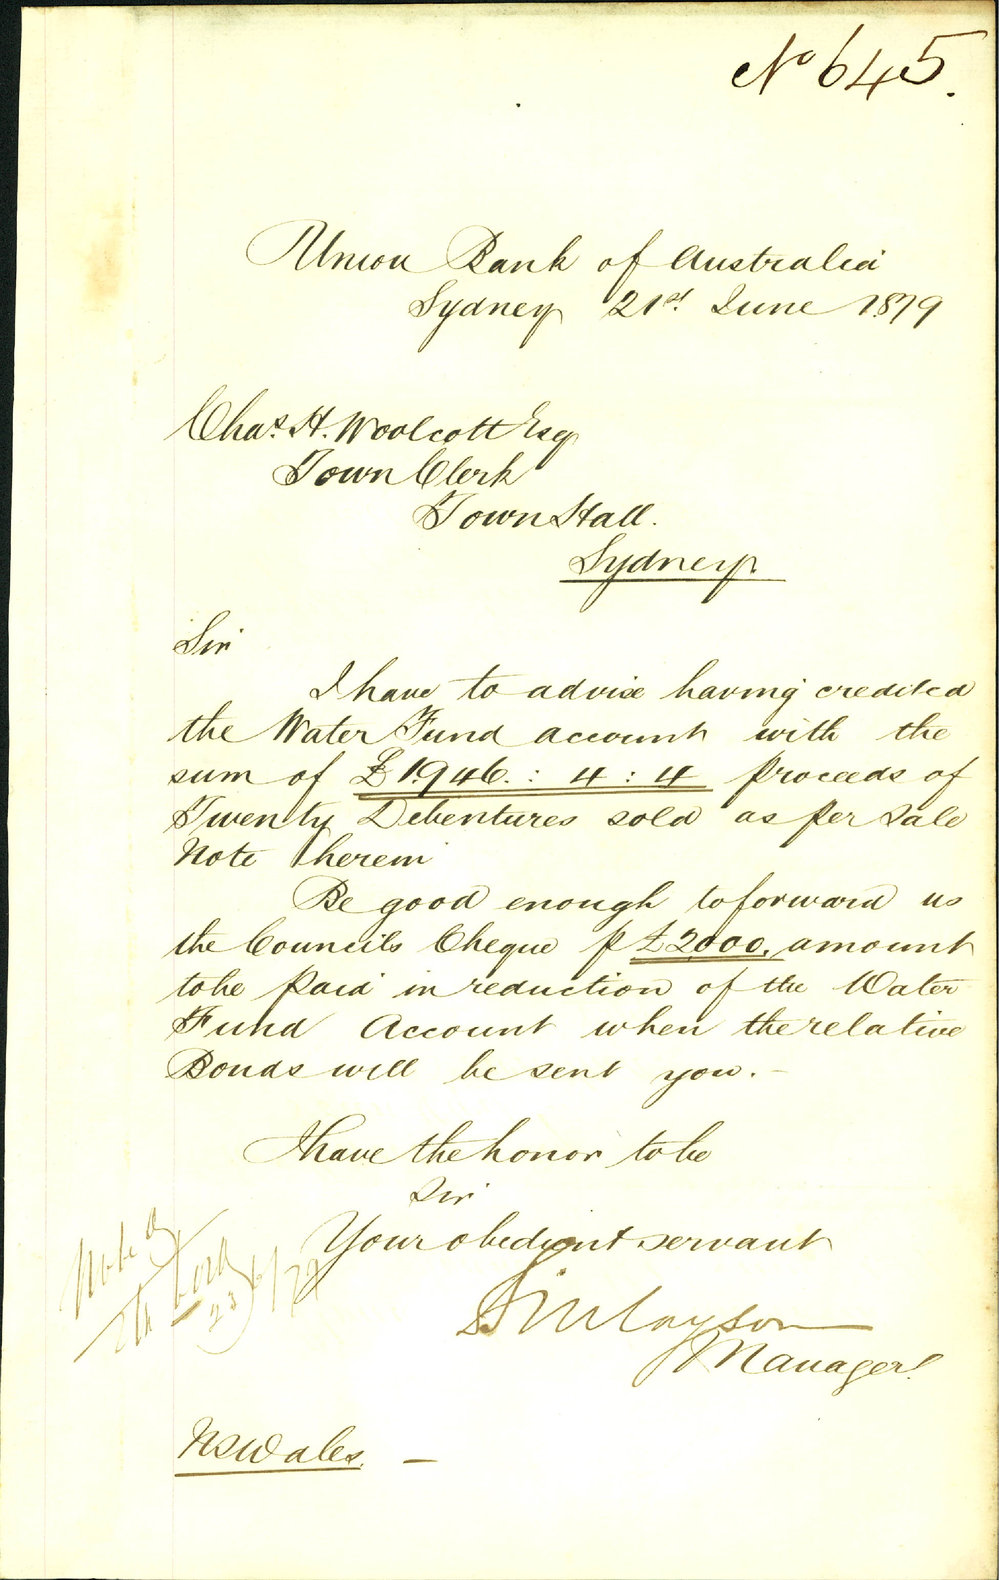 No 645.
Union Bank of Australia
Sydney 21st. June 1879
Chas. H. Woolcott Esq
Town Clerk
Town Hall.
Sydney
Sir
I have to advise having credited
the Water Fund account with the
sum of £1946. : 4 : 4 proceeds of
Twenty Debentures sold as per Sale
Note herein
Be good enough to forward us
the Councils Cheque p £2000. amount
to be paid in reduction of the Water
Fund Account when the relative
Bonds will be sent you. -
I have the honor to be
Sir
Your obedient servant
Finlayson
Manager.
Noted
23/6/79
NSWales. -